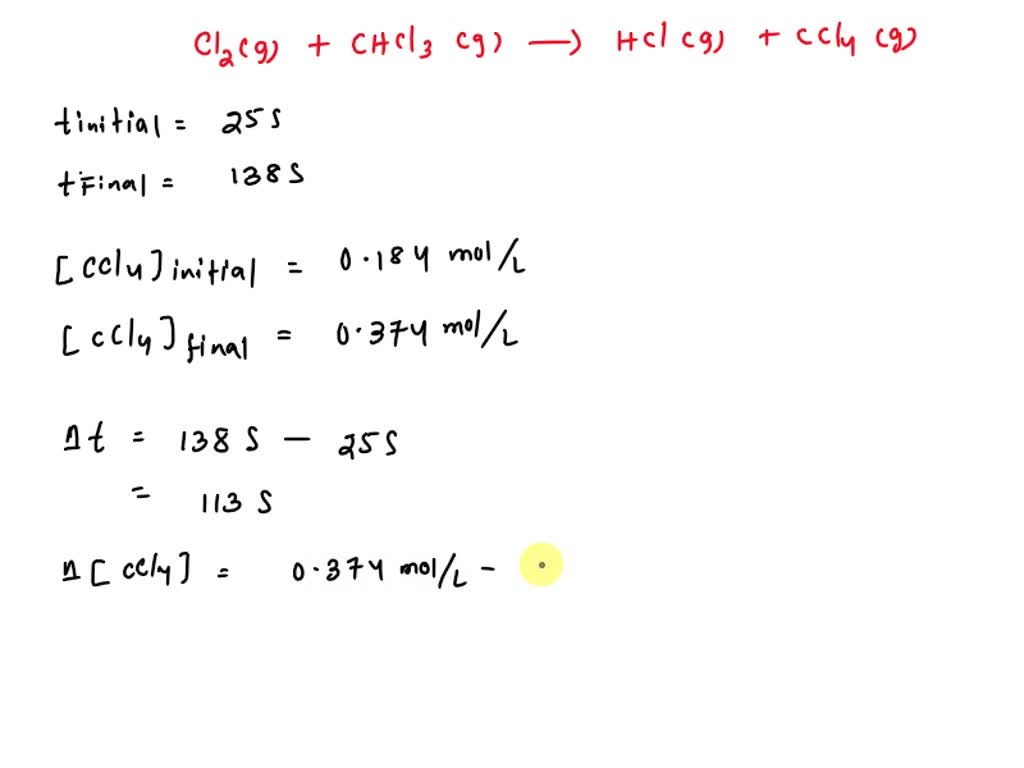 Cl2(g) + CHCl3 (g) → HCl (g) + CCl4 (g)
tinitial = 25 S
tFinal = 138 S
[CCl4] initial = 0.184 mol/L
[CCl4] final = 0.374 mol/L
Δt = 138 S - 25 S
= 113 S
Δ[CCl4] = 0.374 mol/L -